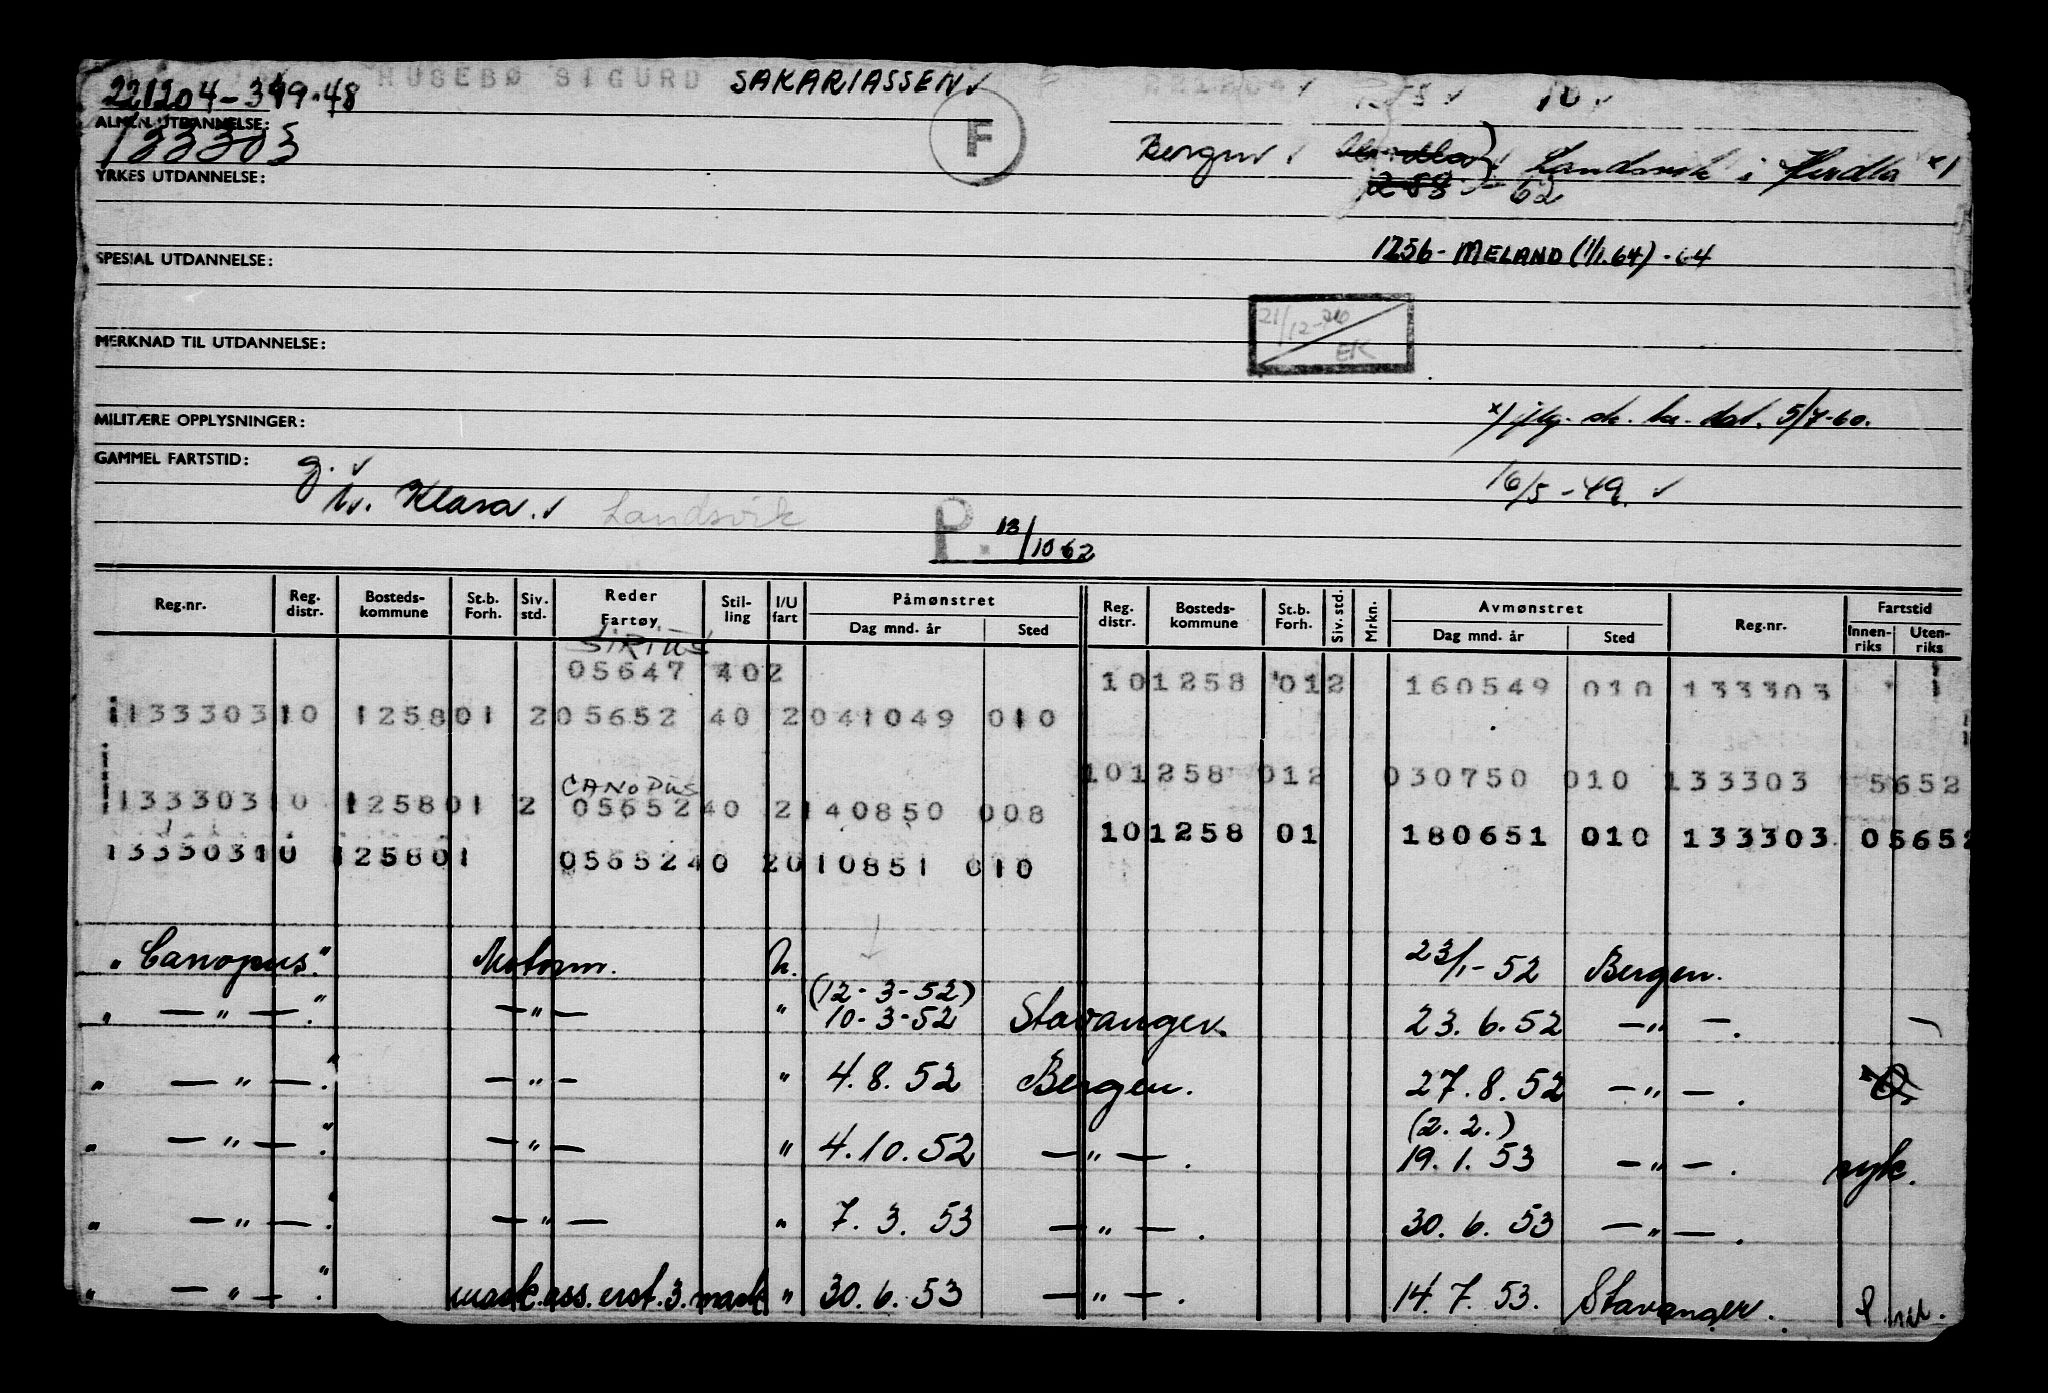 221204-349.48 HUSEBØ SIGURD SAKARIASSEN 221204 10
ALMEN UTDANNELSE:
133303 F Bergen Landsvik i Herdla x)
YRKES UTDANNELSE: 62
SPESIAL UTDANNELSE: 1256 - MELAND (1/1.64) - 64
21/12-26 EK
MERKNAD TIL UTDANNELSE:
MILITÆRE OPPLYSNINGER: x) dat. 5/7-60.
GAMMEL FARTSTID: g. 16/5-49.
Klara. Landsvik
P. 13/10 62
Reg.nr. Reg. distr. Bosteds-kommune St.b. Forh. Siv. std. Reder Fartøy Stil-ling I/U fart Påmønstret Dag mnd. år Sted Reg. distr. Bosteds-kommune St.b. Forh. Siv. std. Mrkn. Avmønstret Dag mnd. år Sted Reg.nr. Fartstid Innen-riks Uten-riks
SIRIUS
05647 402 101258 012 160549 010 133303
133303 10 125801 2 05652 40 2 041049 010
101258 012 030750 010 133303 5652
CANOPUS
133303 10 125801 2 05652 40 2 140850 008
101258 01 180651 010 133303 05652
133303 10 125801 05652 40 2 010851 010
"Canopus." Motorm. 23/1-52 Bergen.
(12-3-52)
" — " — ." — " — " 10-3-52 Stavanger. 23.6.52 — " — .
" — " — ." — " — " 4.8.52 Bergen. 27.8.52 — " — .
(2.2.)
" — " — ." — " — " 4.10.52 — " — . 19.1.53 — " — . syk.
" — " — ." — " — " 7.3.53 — " — . 30.6.53 — " — .
" — " — ." mask.ass. erst. 3. mask " 30.6.53 — " — . 14.7.53. Stavanger.